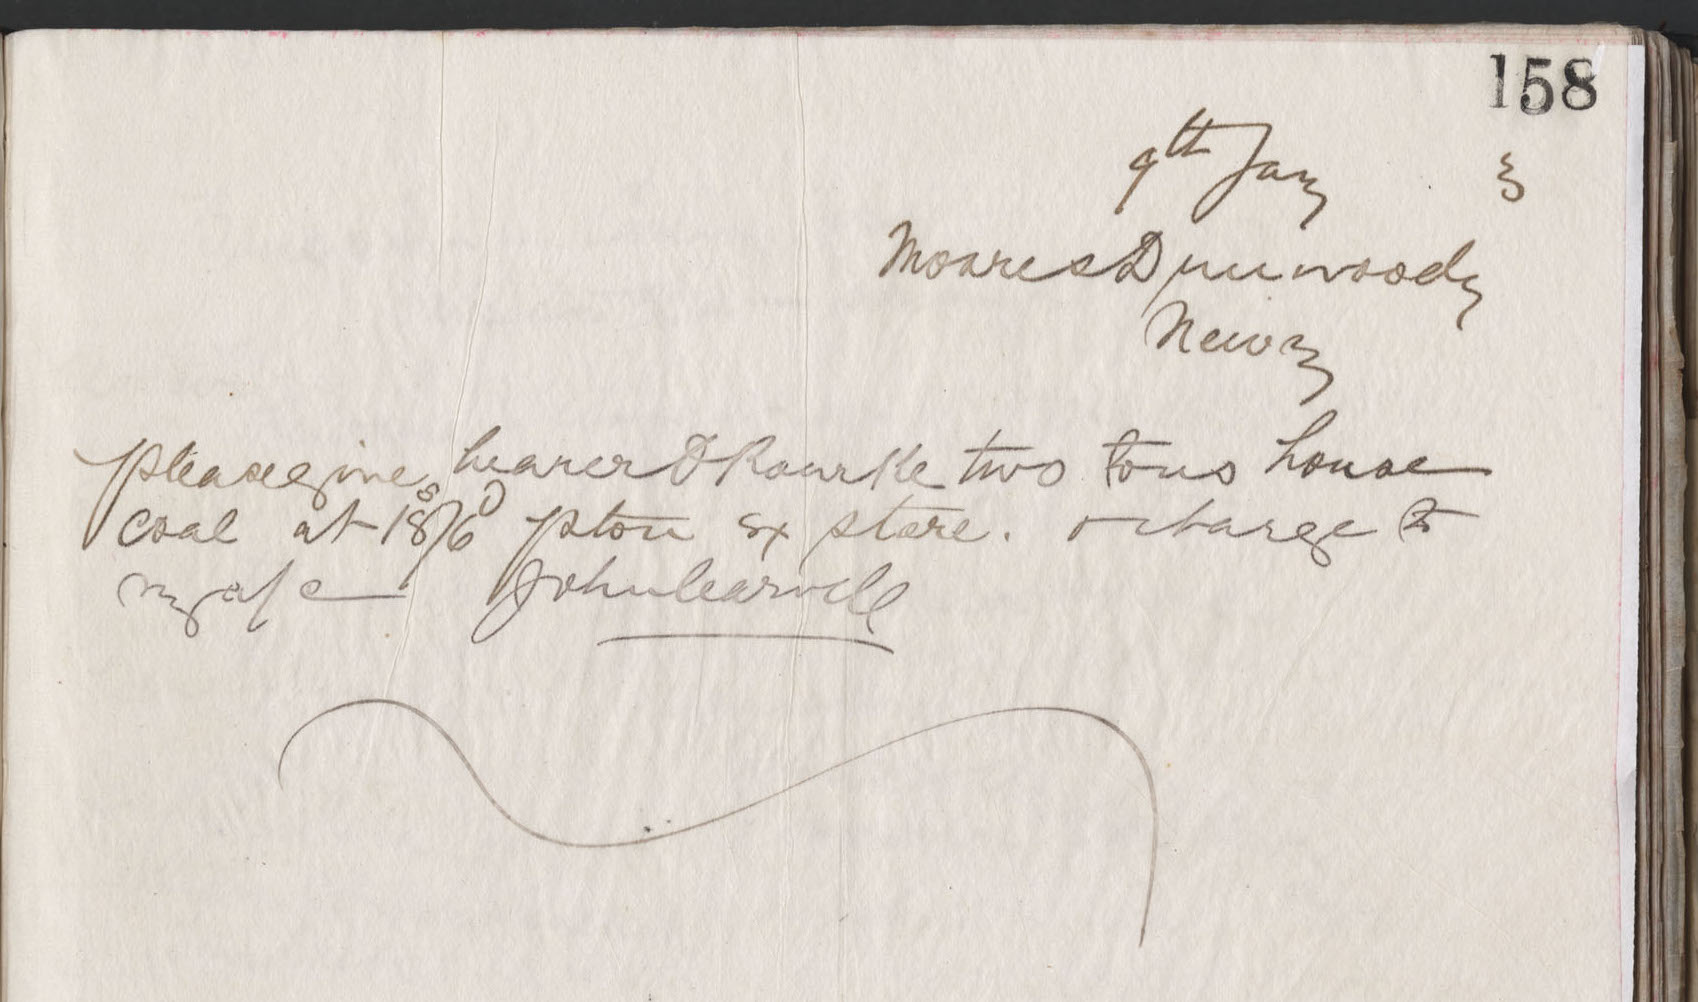 158
9th Jany 3
Moores Dunwoody
Newry
please give bearer O Rourke two tons house
coal at 18s/6D pton ex store. & charge to
my a/c John